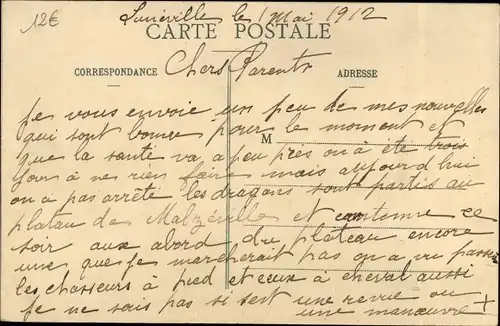 12€
Lunéville le 1 Mai 1912
CARTE POSTALE
CORRESPONDANCE
Chers Parents
ADRESSE
je vous envoie un peu de mes nouvelles
qui sont bonne pour le moment et
M
que la santé va a peu près on à été trois
jour à ne rien faire mais aujourd hui
on á pas arrêté les dragons sont partis au
plateau de Malzéville et cantonne ce
soir aux abord du plateau encore
une que je marcherait pas on a vu passer
les chasseurs à pied et ceux à cheval aussi
je ne sais pas si sest une revue ou
une manœuvre +